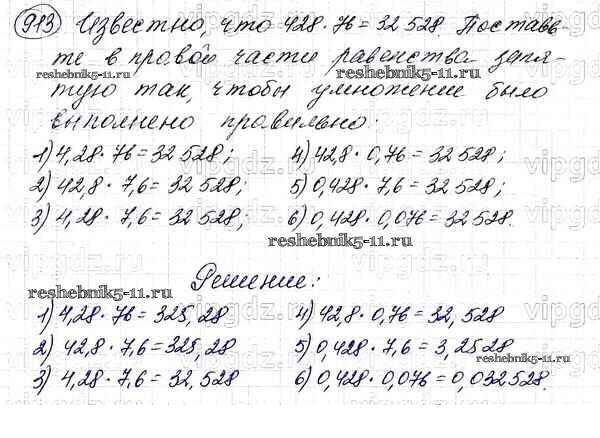 913 Известно, что 428 · 76 = 32 528. Поставь-
те в правой части равенства запя-
тую так, чтобы умножение было
выполнено правильно:
1) 4,28 · 76 = 32 528; 4) 42,8 · 0,76 = 32 528;
2) 42,8 · 7,6 = 32 528; 5) 0,428 · 7,6 = 32 528;
3) 4,28 · 7,6 = 32 528; 6) 0,428 · 0,076 = 32 528.
Решение:
1) 4,28 · 76 = 325,28 4) 42,8 · 0,76 = 32,528
2) 42,8 · 7,6 = 325,28 5) 0,428 · 7,6 = 3,2528
3) 4,28 · 7,6 = 32,528 6) 0,428 · 0,076 = 0,032528.
reshebnik5-11.ru
reshebnik5-11.ru
reshebnik5-11.ru
reshebnik5-11.ru
reshebnik5-11.ru
vipgdz.ru